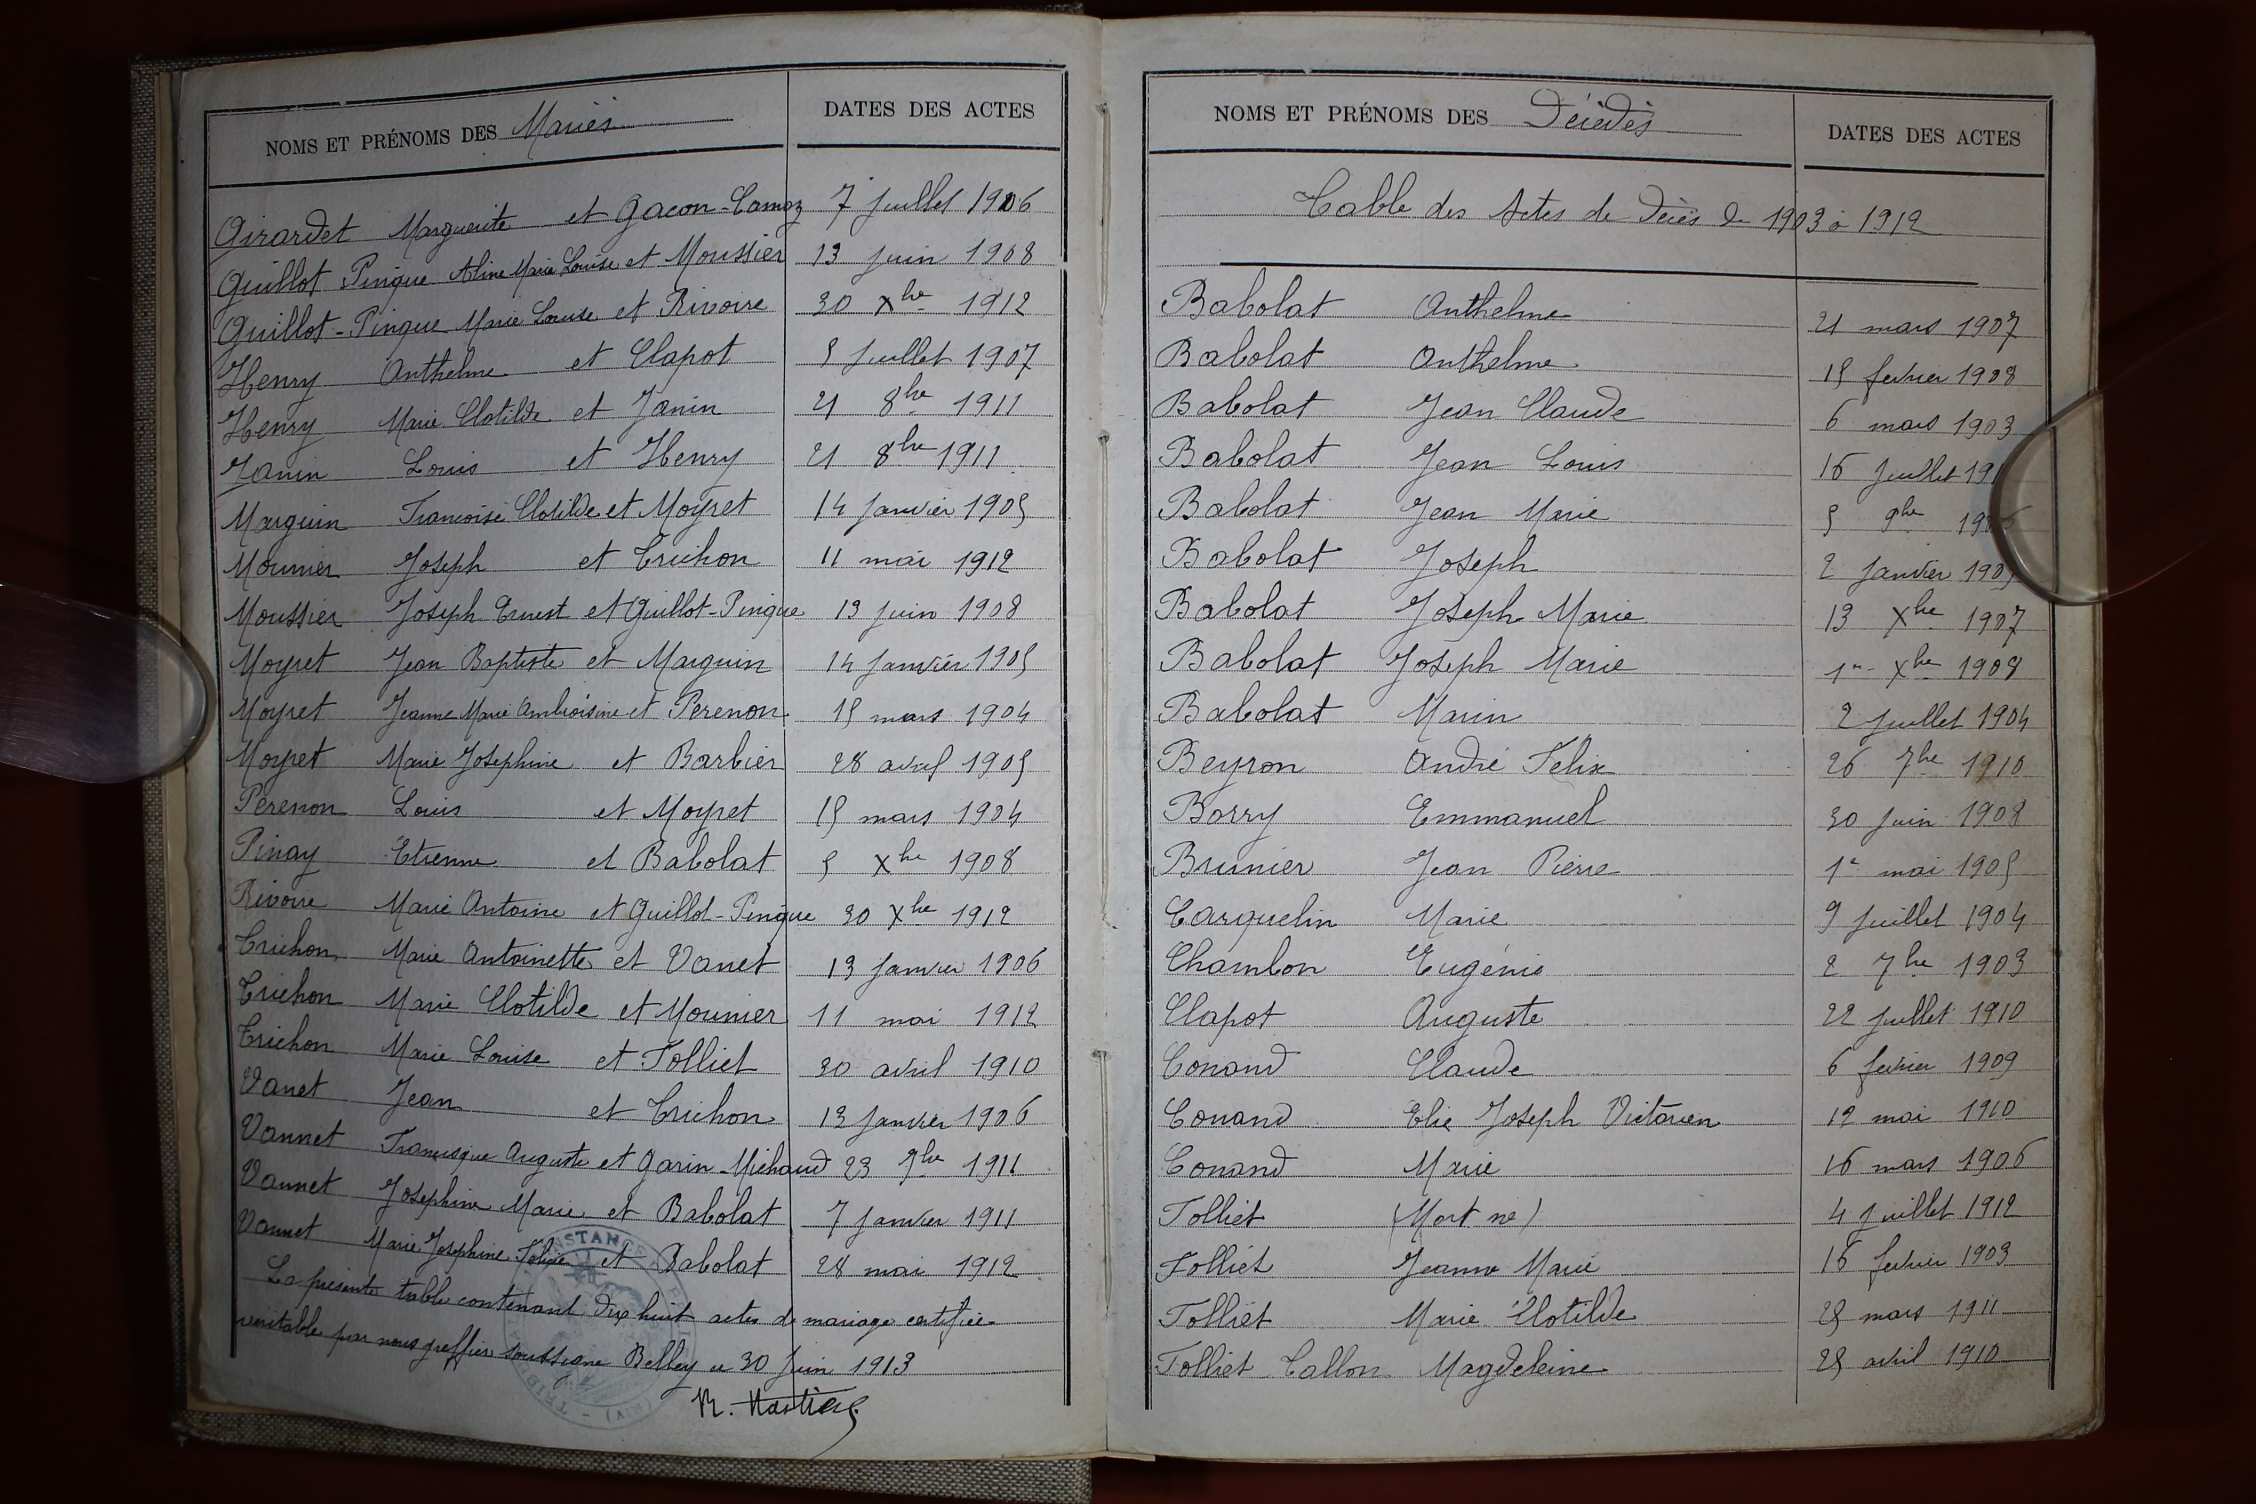 NOMS ET PRÉNOMS DES Mariés DATES DES ACTES
Girardet Marguerite et Gacon-Camoz 7 juillet 1906
Guillot Pingue Aline Marie Louise et Moussier 13 juin 1908
Guillot-Pingue Marie Louise et Rivoire 30 Xbre 1912
Henry Anthelme et Clapot 5 juillet 1907
Henry Marie Clotilde et Janin 21 8bre 1911
Janin Louis et Henry 21 8bre 1911
Marguin Françoise Clotilde et Moyret 14 janvier 1905
Mounier Joseph et Trichon 11 mai 1912
Moussier Joseph Ernest et Guillot-Pingue 13 juin 1908
Moyret Jean Baptiste et Marguin 14 janvier 1905
Moyret Jeanne Marie Ambroisine et Perenon 15 mars 1904
Moyret Marie Josephine et Barbier 28 avril 1905
Perenon Louis et Moyret 15 mars 1904
Pinay Etienne et Babolat 5 Xbre 1908
Rivoire Marie Antoine et Guillot-Pingue 30 Xbre 1912
Trichon Marie Antoinette et Vanet 13 janvier 1906
Trichon Marie Clotilde et Mounier 11 mai 1912
Trichon Marie Louise et Folliet 30 avril 1910
Vanet Jean et Trichon 13 janvier 1906
Vannet Francisque Auguste et Garin-Michaud 23 9bre 1911
Vannet Josephine Marie et Babolat 7 janvier 1911
Vannet Marie Josephine et Babolat 28 mai 1912
La présente table contenant dix huit actes de mariage certifiée
veritable par nous greffier soussigné Belley le 30 Juin 1913
NOMS ET PRÉNOMS DES Décédés DATES DES ACTES
Table des Actes de Décès de 1903 à 1912
Babolat Anthelme 21 mars 1907
Babolat Anthelme 15 fevrier 1908
Babolat Jean Claude 6 mars 1903
Babolat Jean Louis 16 juillet 19
Babolat Jean Marie 5 9bre 1906
Babolat Joseph 2 janvier 1905
Babolat Joseph Marie 13 Xbre 1907
Babolat Joseph Marie 1er Xbre 1908
Babolat Marin 2 juillet 1904
Beyron André Félix 26 7bre 1910
Borry Emmanuel 30 juin 1908
Brunier Jean Pierre 1er mai 1905
Carquelin Marie 9 juillet 1904
Chambon Eugénie 2 7bre 1903
Clapot Auguste 22 juillet 1910
Conand Claude 6 fevrier 1909
Conand Elie Joseph Victorien 12 mai 1910
Conand Marie 16 mars 1906
Folliet (Mort né) 4 juillet 1912
Folliet Jeanne Marie 16 fevrier 1903
Folliet Marie Clotilde 28 mars 1911
Folliet Callon Magdeleine 25 avril 1910